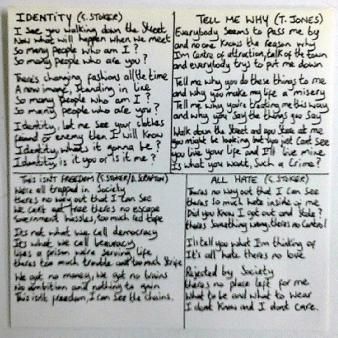 IDENTITY (G. STOKER)
I see you walking down the Street
Now what will happen when we meet
So many people who am I?
So many people who are you?
There's changing fashions all the time
A new image, standing in line
So many people who am I?
So many people who are you?
Identity, let me see your clothes
friend or enemy then I will know
Identity, what's it gonna be?
Identity, is it you or is it me?
TELL ME WHY (T. JONES)
Everybody seems to pass me by
and no one knows the reason why
I'm centre of attraction, talk of the town
and everybody trys to put me down
Tell me why you do these things to me
and why you make my life a misery
Tell me why you're treating me this way
and why you say the things you say
Walk down the Street and you stare at me
you might be looking but you just can't see
you live your life and I'll live mine
Is what you want, Such a Crime?
THIS ISN'T FREEDOM (G. STOKER/D. STRATTON)
We're all trapped in Society
theres no way out that I can see
We can't get free theres no escape
Government hassles, too much red tape
Its not what we call democracy
Its what we call beaucracy
Lifes a prison you're serving life
theres too much trouble and too much Strife
We got no money, we got no brains
No ambition and nothing to gain
This isn't freedom, I can see the chains.
ALL HATE (G. STOKER)
Theres no way out that I can See
theres so much hate inside of me
Did you know I got out and State?
theres Something wrong, theres no Control
I'll tell you what I'm thinking of
It's all hate theres no love
Rejected by Society
theres no place left for me
What to be and what to Wear
I dont Know and I dont care.